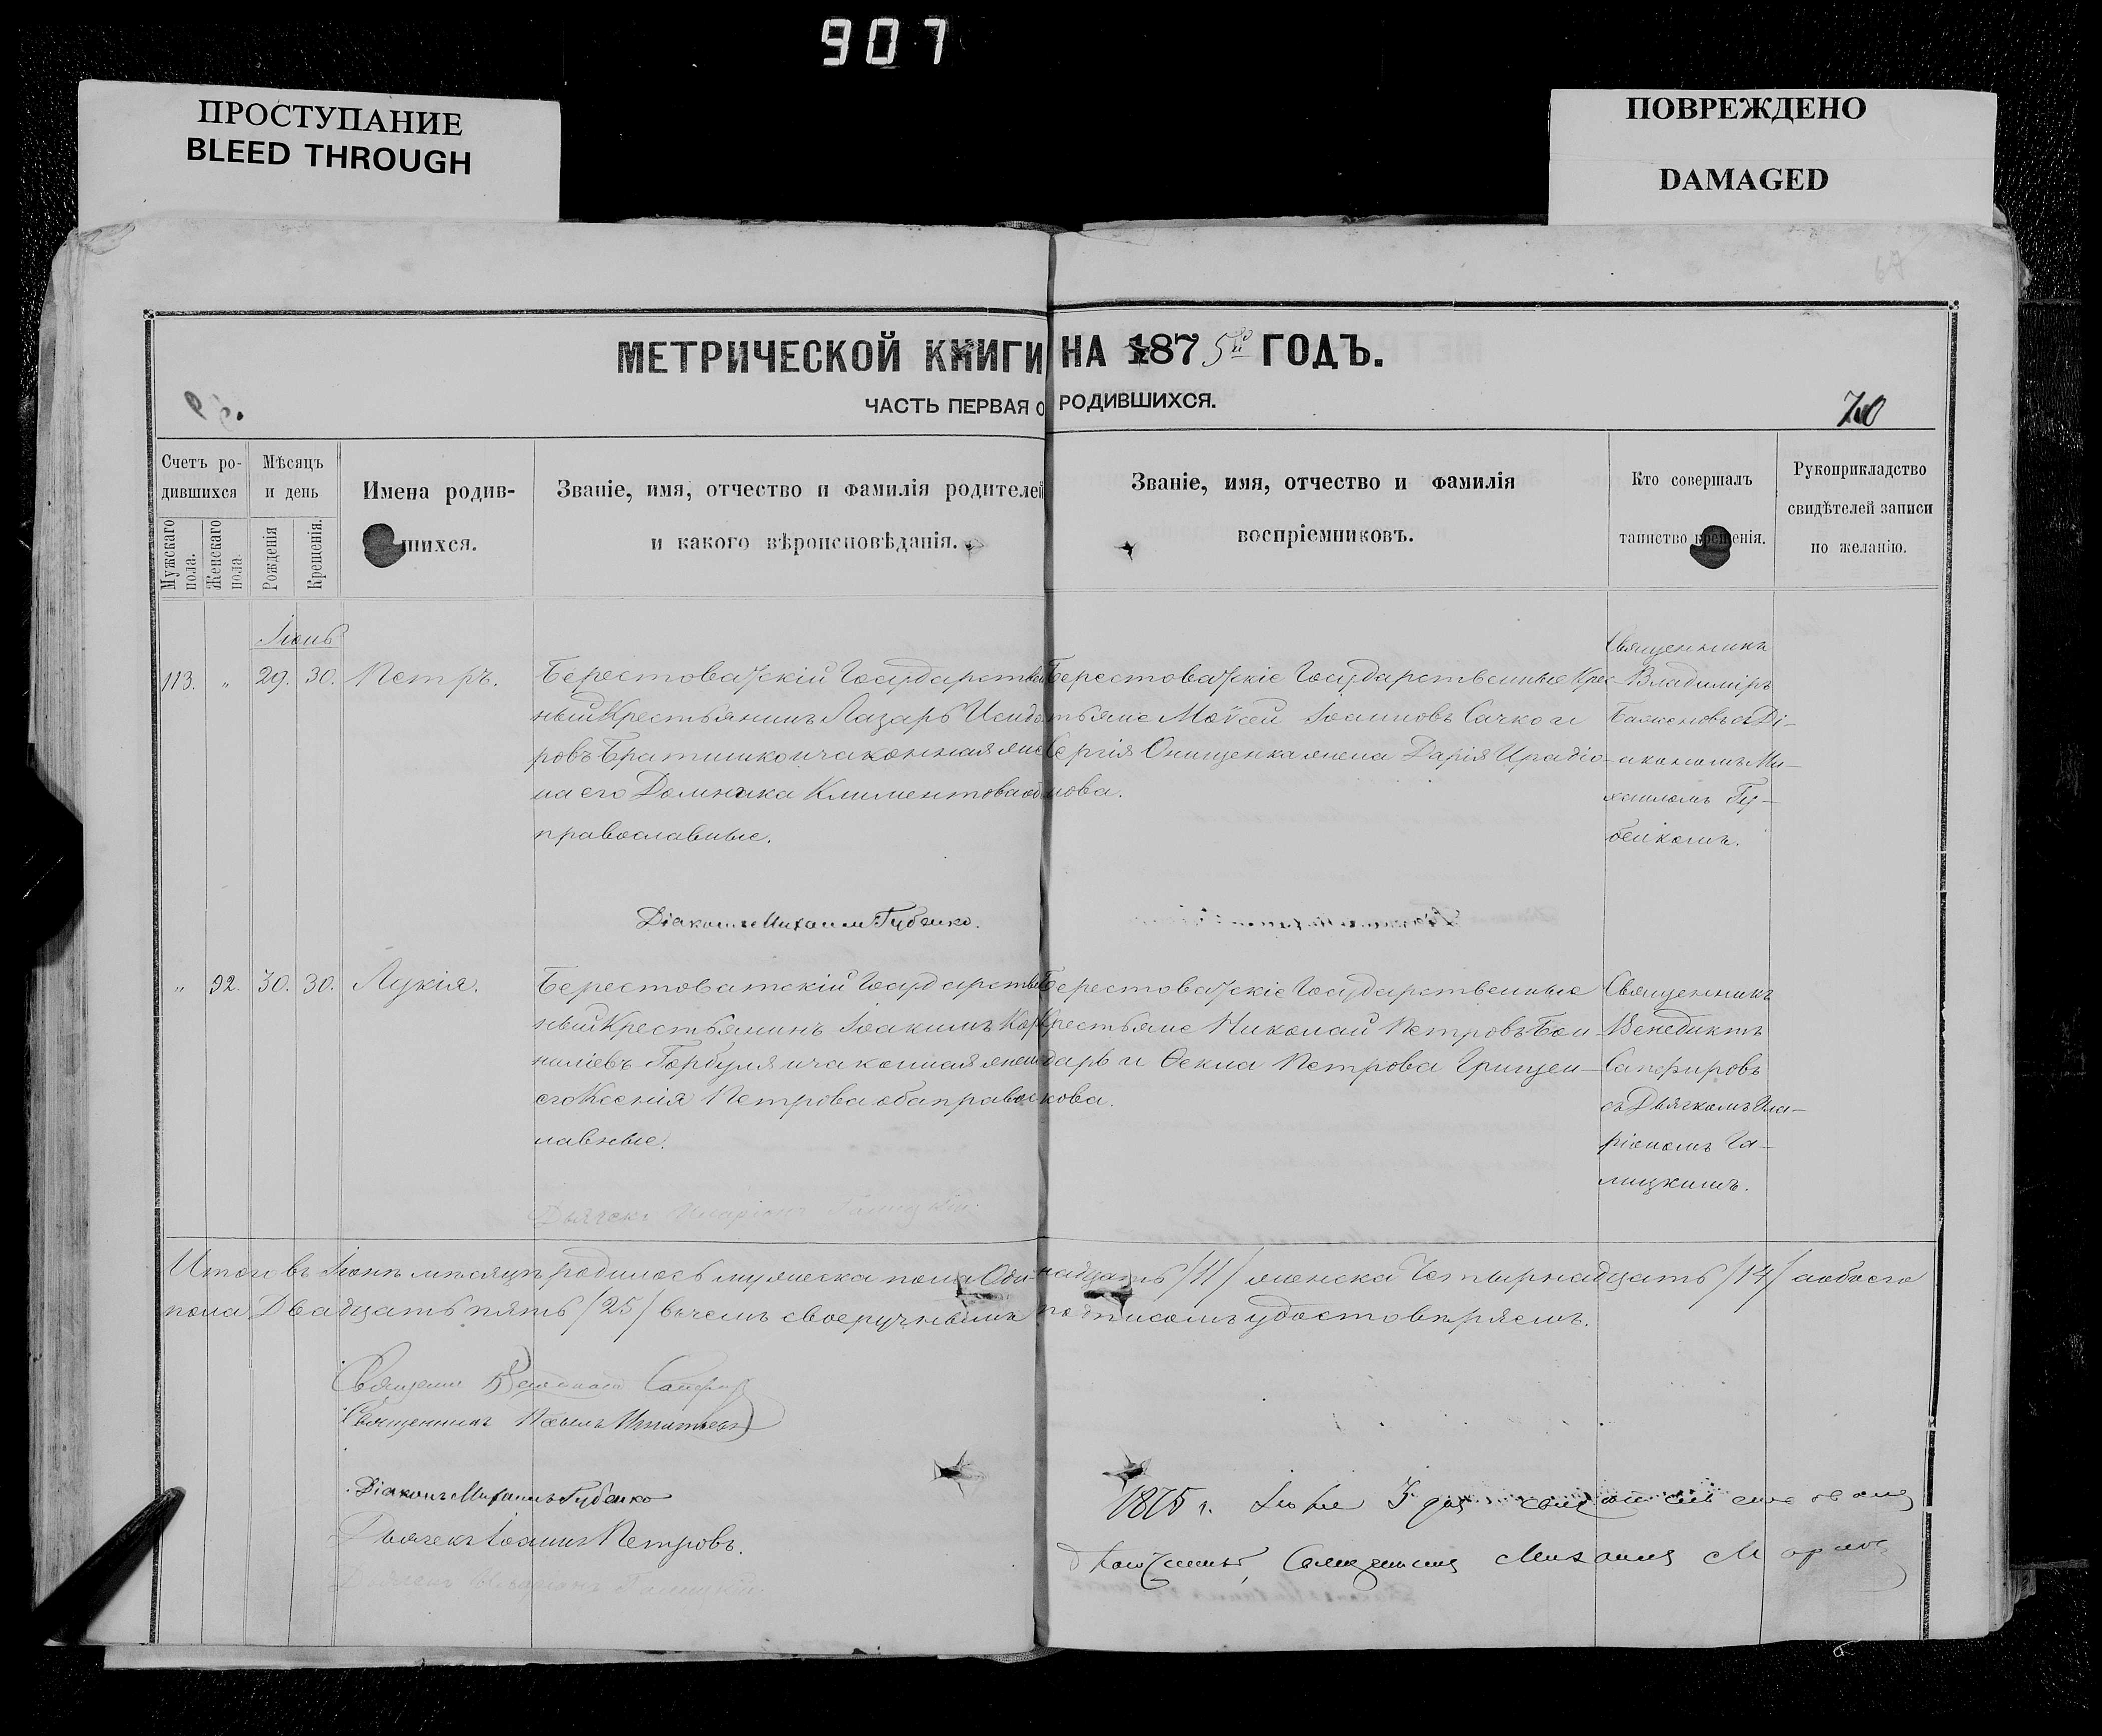 907
ПРОСТУПАНИЕ
BLEED THROUGH
ПОВРЕЖДЕНО
DAMAGED
67
МЕТРИЧЕСКОЙ КНИГИ НА 1875й ГОДЪ.
ЧАСТЬ ПЕРВАЯ О РОДИВШИХСЯ.
70
Счетъ ро-
дившихся
Мужскаго пола.
Женскаго пола.
Мѣсяцъ
и день
Рожденія
Крещенія.
Имена родив-
шихся.
Званіе, имя, отчество и фамилія родителей
и какого вѣроисповѣданія.
Званіе, имя, отчество и фамилія
воспріемниковъ.
Кто совершалъ
таинство крещенія.
Рукоприкладство
свидѣтелей записи
по желанію.
Іюнь
113. „ 29. 30. Петръ.
Берестоватскій Государствен
ный Крестьянинъ Лазарь Исидо
ровъ Братишко и законная жє
на его Домника Климентова об
православные.
Берестоватскіе Государственные Крес-
тьяне Моѵсей Іоанновъ Сачко и
Сергія Онищенка жена Дарія Иродіо-
нова.
Священникъ
Владиміръ
Баженовъ съ Ді-
акономъ Ми-
хаиломъ Гу-
бенкомъ.
Діаконъ Михаилъ Губенко.
„ 92. 30. 30. Лукія.
Берестоватскій Государствен
ный Крестьянинъ Іоакимъ Кор
ниліевъ Горбуля и законная жена
его Ксенія Петрова оба правос
лавные.
Берестоватскіе Государственные
Крестьяне Николай Петровъ Бон-
дарь и Ѳекла Петрова Грищен-
кова.
Священникъ
Венедиктъ
Сапфировъ
съ Дьячкомъ Ила-
ріономъ Га-
лицкимъ.
Дьячекъ Иларіонъ Галицкій.
Итого въ Іюнѣ мѣсяцѣ родилось мужеска пола Оди-надцать /11/ женска Четырнадцать /14/ а обоего
пола Двадцать пять /25/ въ чемъ своеручнымъ подписомъ удостовѣряемъ.
Священник Венедиктъ Сапфир
Священникъ
Діаконъ Михаилъ Губенко
Дьячекъ Іоаннъ Петровъ.
Дьячекъ Иларіонъ Галицкій.
1875 г. Іюля 3 дня
Священникъ Михаилъ